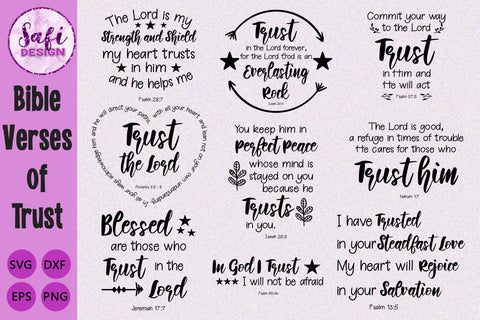 Safi
DESIGN
Bible
Verses
of
Trust
SVG
DXF
EPS
PNG
The Lord is my
Strength and Shield
my heart trusts
in him
and he helps me
Psalm 28:7
Trust
in the Lord forever,
for the Lord God is an
Everlasting
Rock
Isaiah 26:4
Commit your way
to the Lord
Trust
in Him and
He will act
Psalm 37:5
with all your heart and lean not on your own understanding
in all your ways acknowledge him and he will direct your paths
Trust
the Lord
Proverbs 3:5 - 6
You keep him in
Perfect Peace
whose mind is
stayed on you
because he
Trusts
in you.
Isaiah 26:3
The Lord is good,
a refuge in times of trouble
He cares for those who
Trust him
Nahum 1:7
Blessed
are those who
Trust in the
Lord
Jeremiah 17:7
In God I Trust
I will not be afraid
I have Trusted
in your Steadfast Love
My heart will Rejoice
in your Salvation
Psalm 13:5